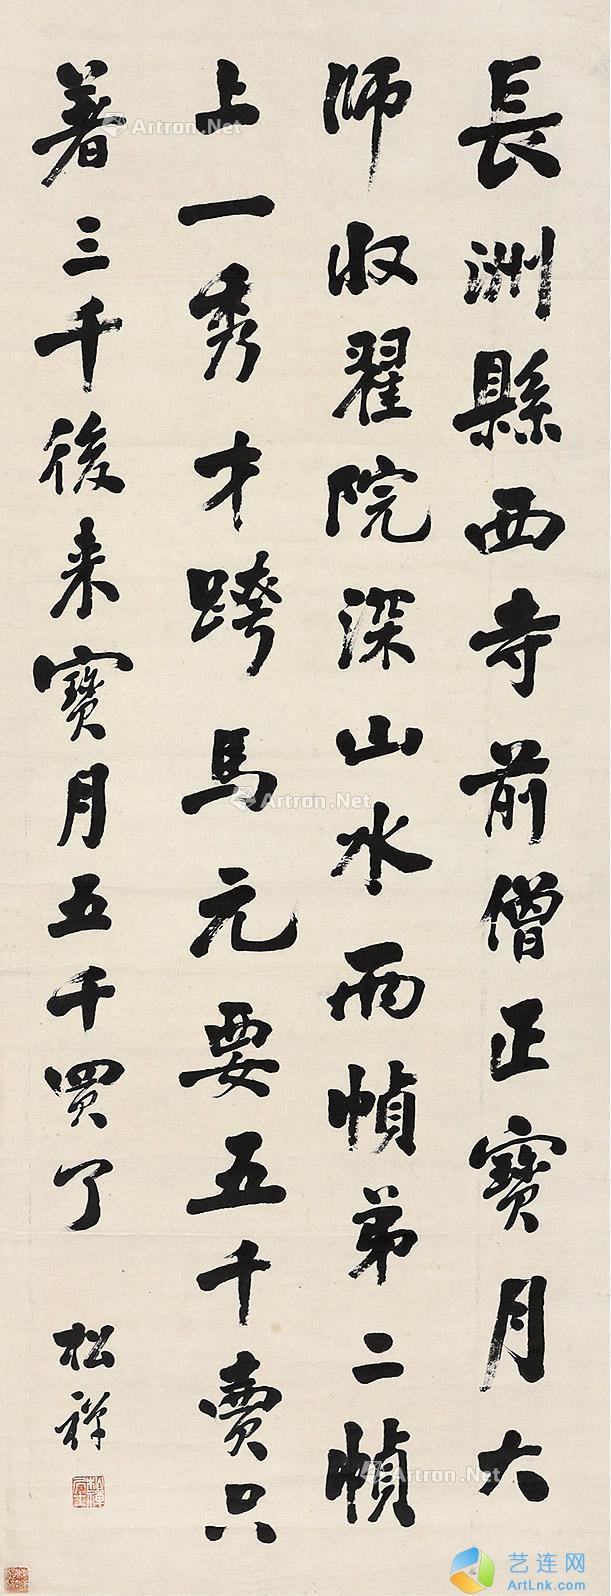 長洲縣西寺前僧正寶月大
師收翟院深山水两幀弟二幀
上一秀才跨馬元要五千賣只
著三千後来寶月五千買了
松禅
Artron.Net
Artron.Net
Artron.Net
艺连网
ArtLnk.com